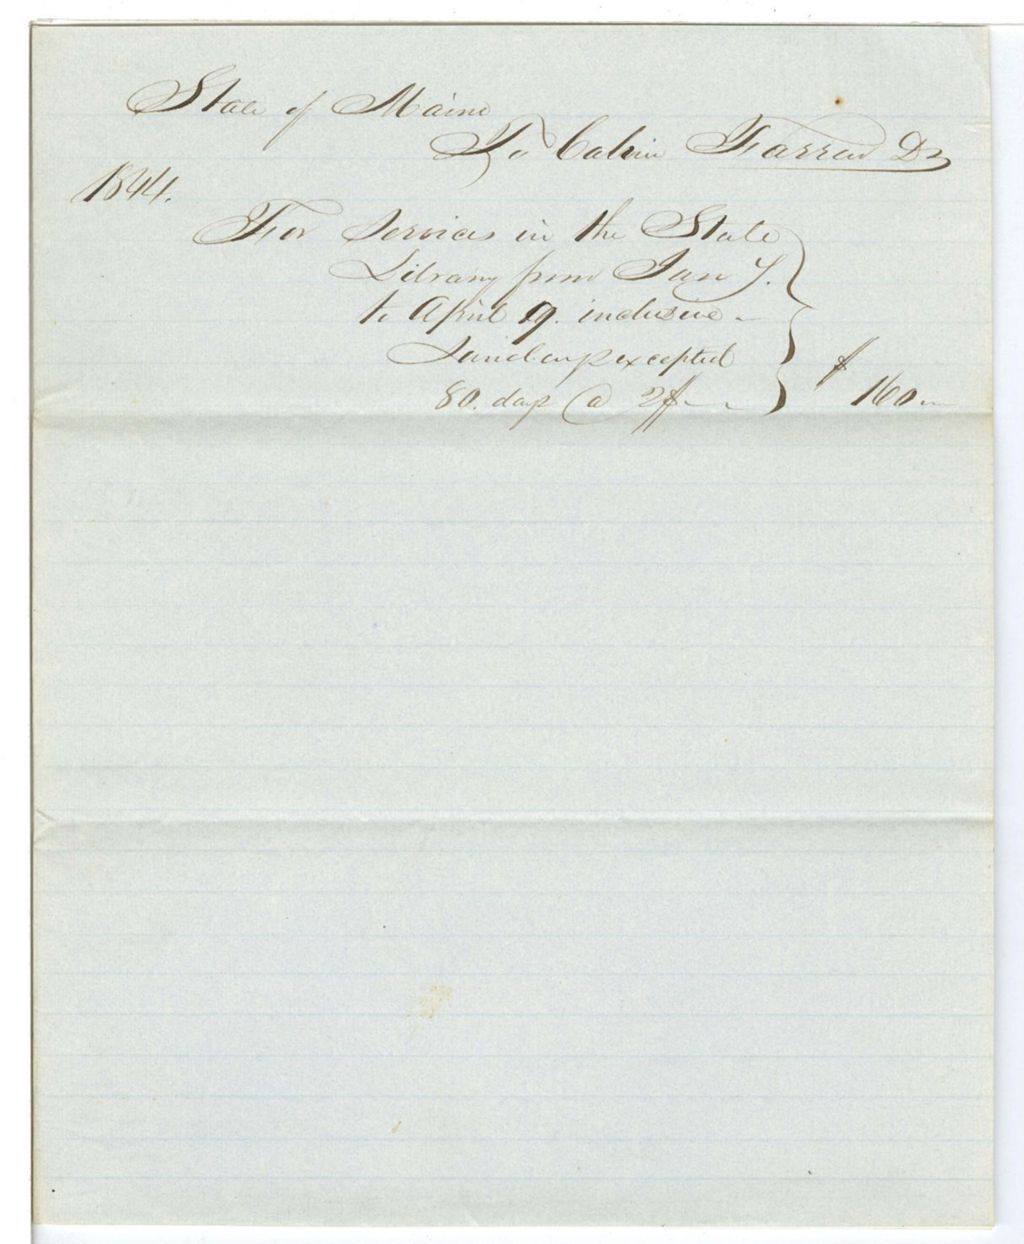 State of Maine
To Calvin Farrar Dr
1844.
For Services in the State
Library from Jan 7.
to April 9. inclusive
Sundays excepted
80. days @ 2$
$ 160